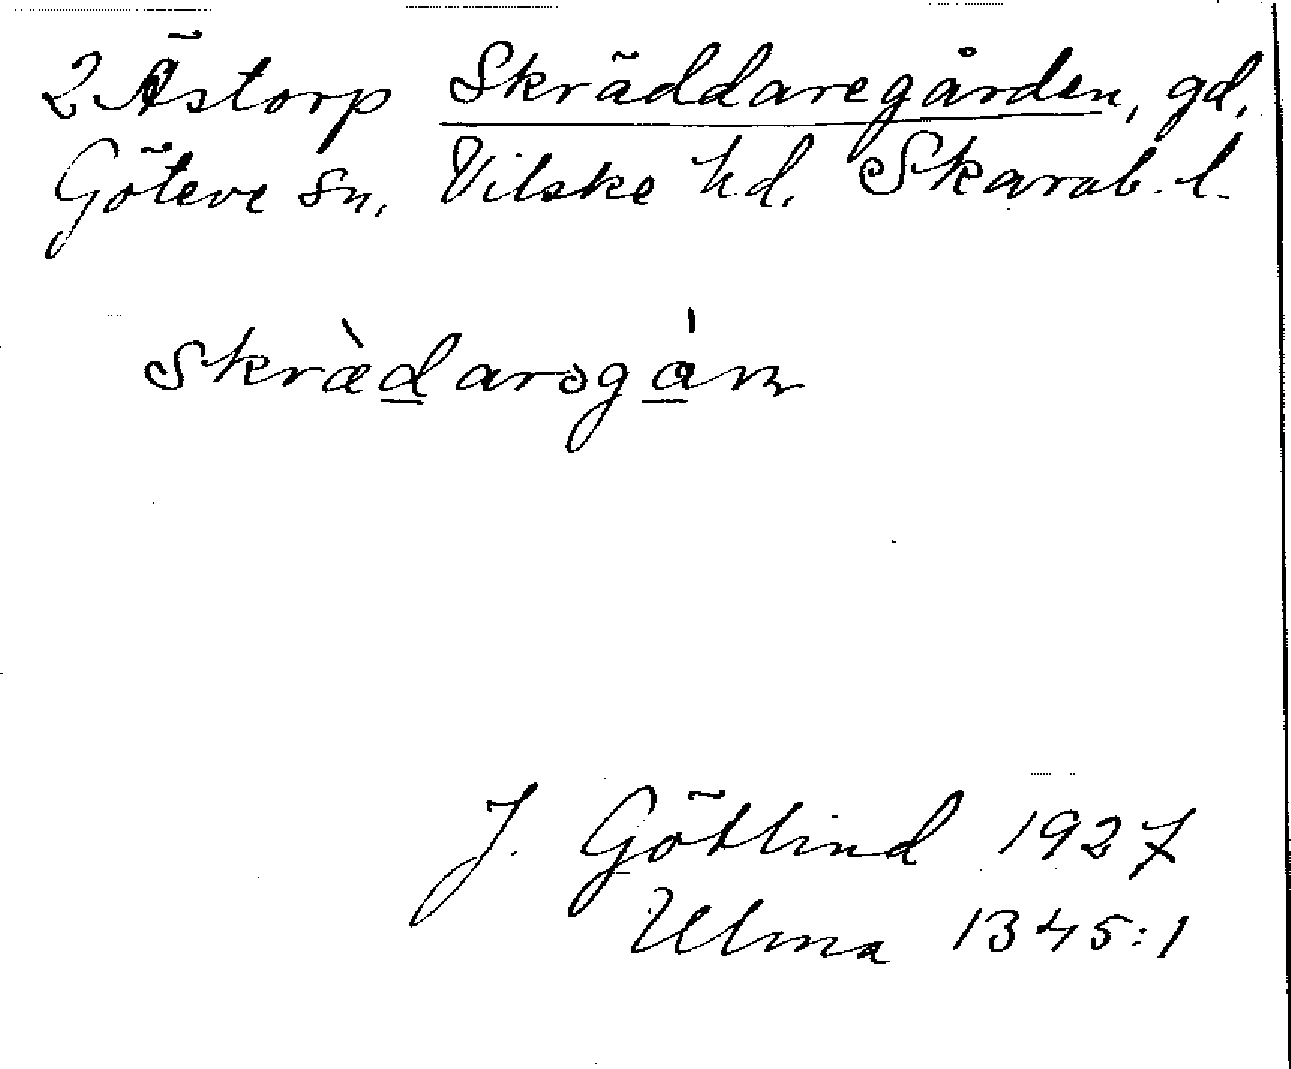 2 Ästorp Skräddaregården, gd.
Göteve sn. Vilske hd. Skarab. l.
Skrædarsgan
J. Götlind 1927
Ulma 1345:1